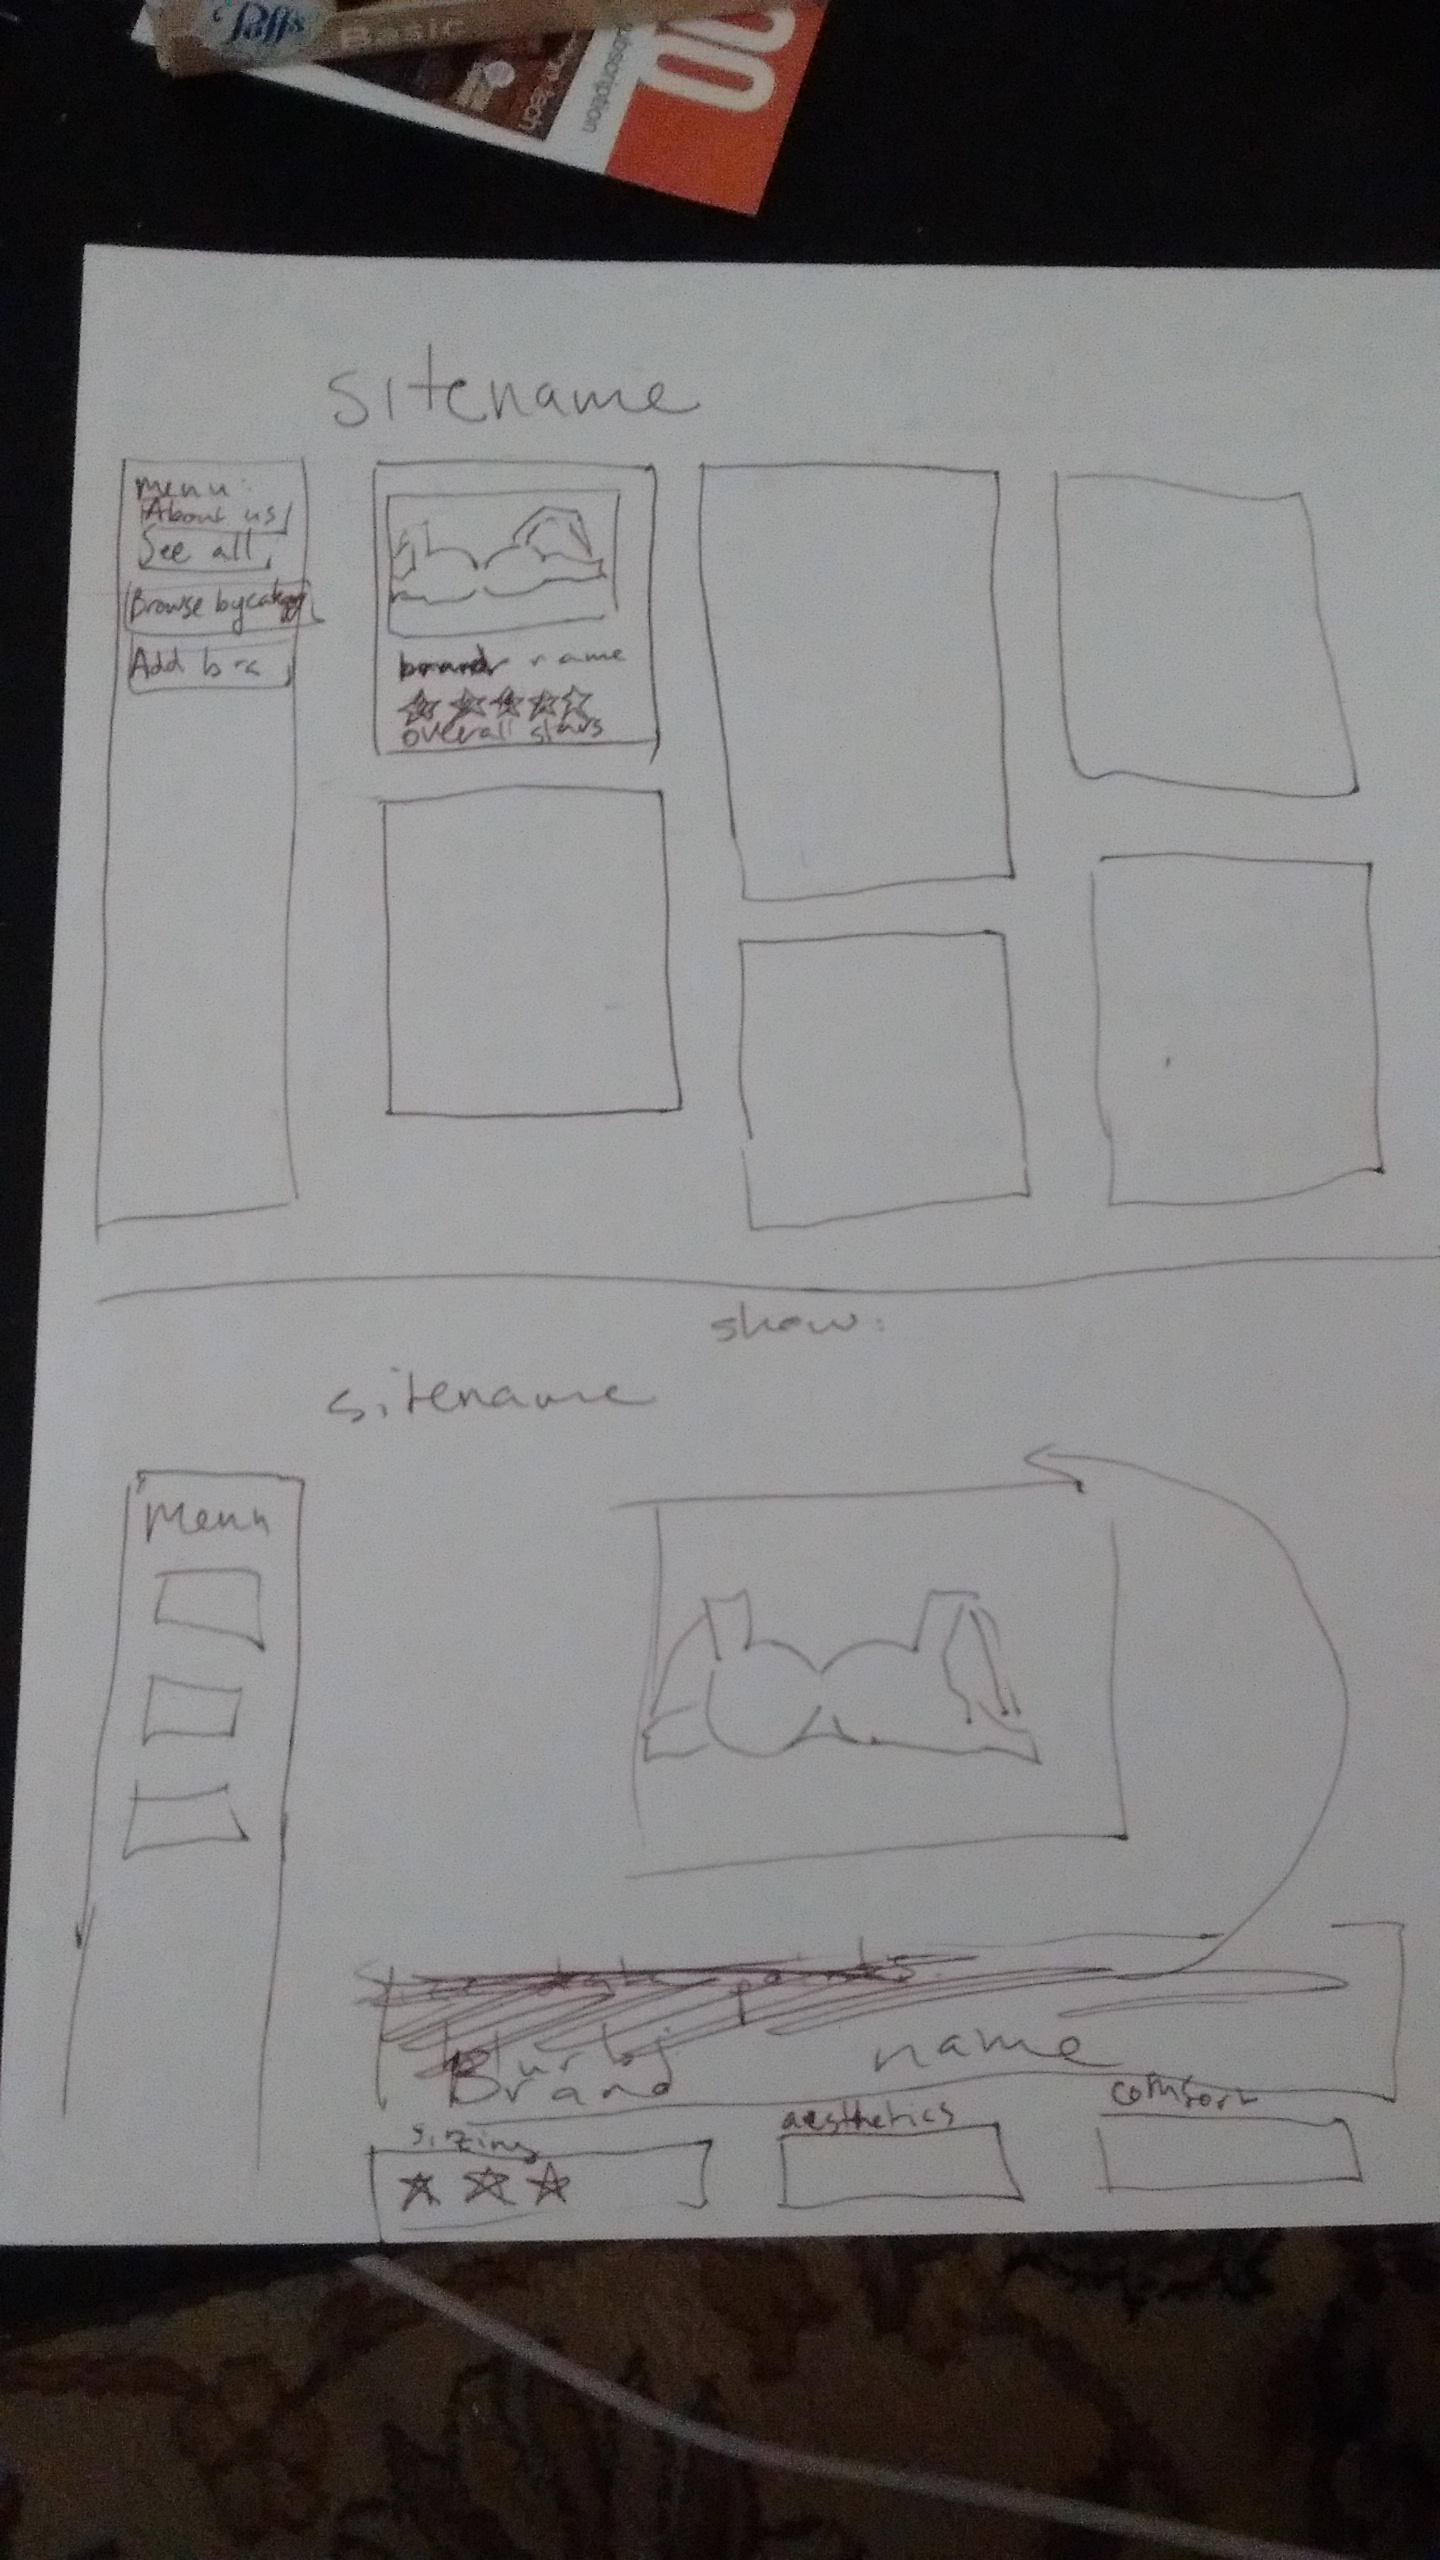 Puffs
Basic
subscription
tech
00
sitename
menu:
About us
See all
Browse by
Add bra
name
overall stars
show:
sitename
Menu
Brand name
sizing
aesthetics
comfort